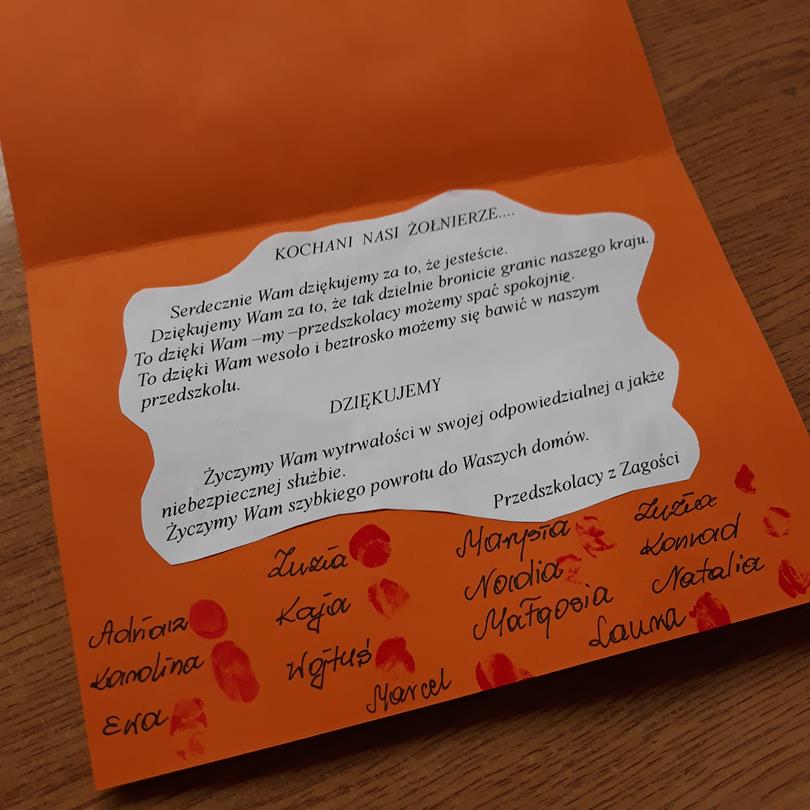 KOCHANI NASI ŻOŁNIERZE....
Serdecznie Wam dziękujemy za to, że jesteście.
Dziękujemy Wam za to, że tak dzielnie bronicie granic naszego kraju.
To dzięki Wam –my –przedszkolacy możemy spać spokojnie.
To dzięki Wam wesoło i beztrosko możemy się bawić w naszym
przedszkolu.
DZIĘKUJEMY
Życzymy Wam wytrwałości w swojej odpowiedzialnej a jakże
niebezpiecznej służbie.
Życzymy Wam szybkiego powrotu do Waszych domów.
Przedszkolacy z Zagości
Adriaz
Karolina
Ewa
Zuzia
Kaja
Wojtuś
Marcel
Marysia
Nadia
Małgosia
Laura
Zuzia
Konrad
Natalia